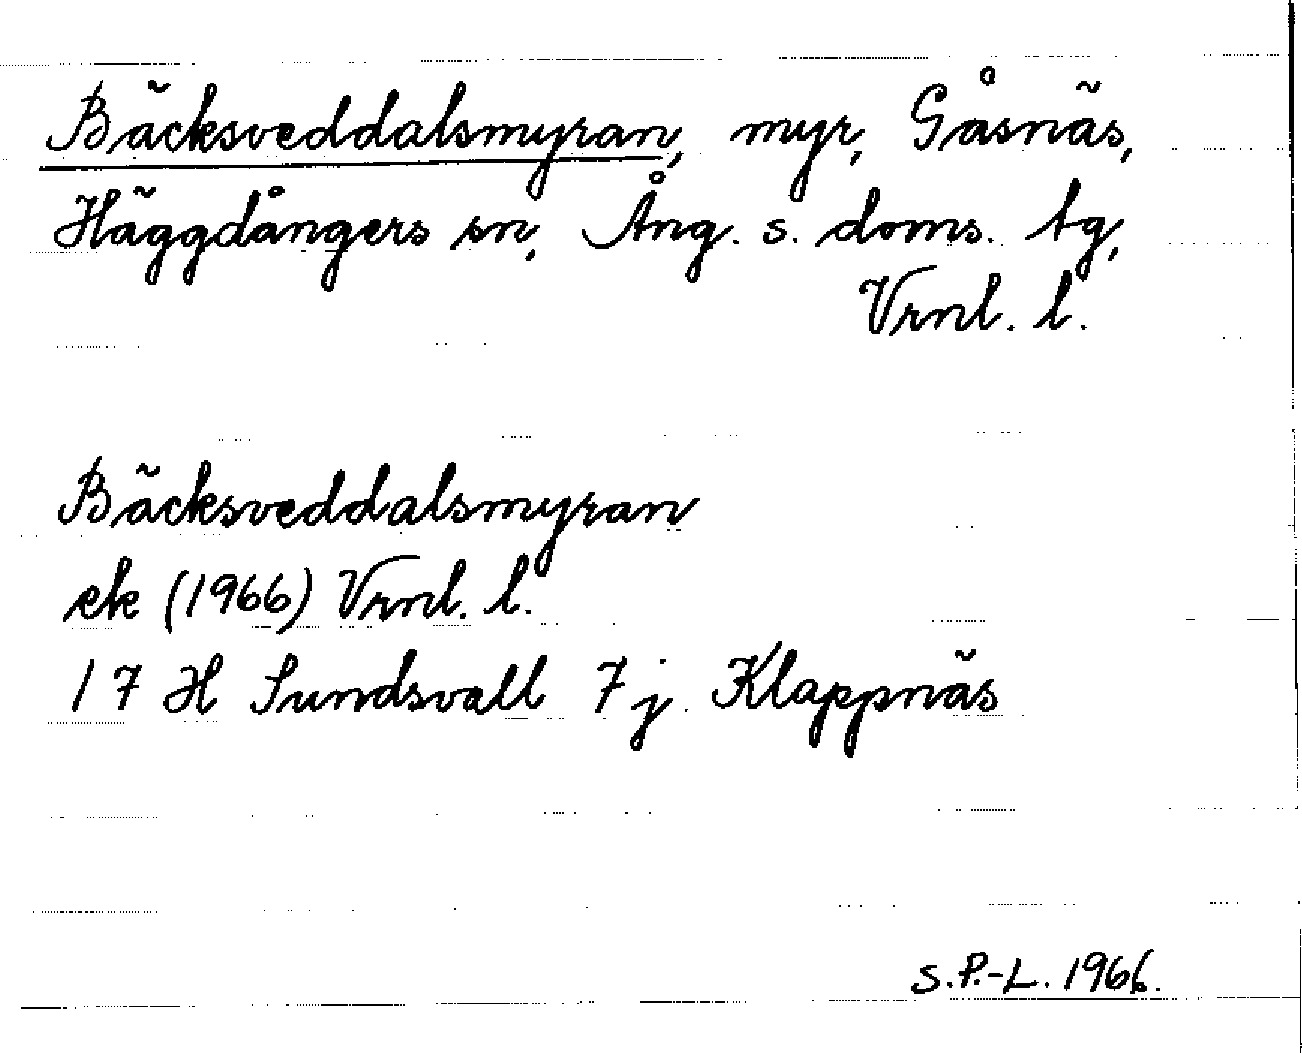 Bäcksveddalsmyran, myr, Gåsnäs,
Häggdångers sn, Ång. s. doms. tg,
Vrnl. l.
Bäcksveddalsmyran
ek (1966) Vrnl. l.
17 H Sundsvall 7 j Klappnäs
S.P.-L. 1966.